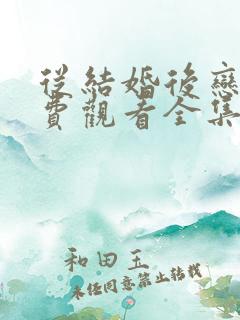 從結婚後戀
費觀看全集
和田玉
未经同意禁止转载